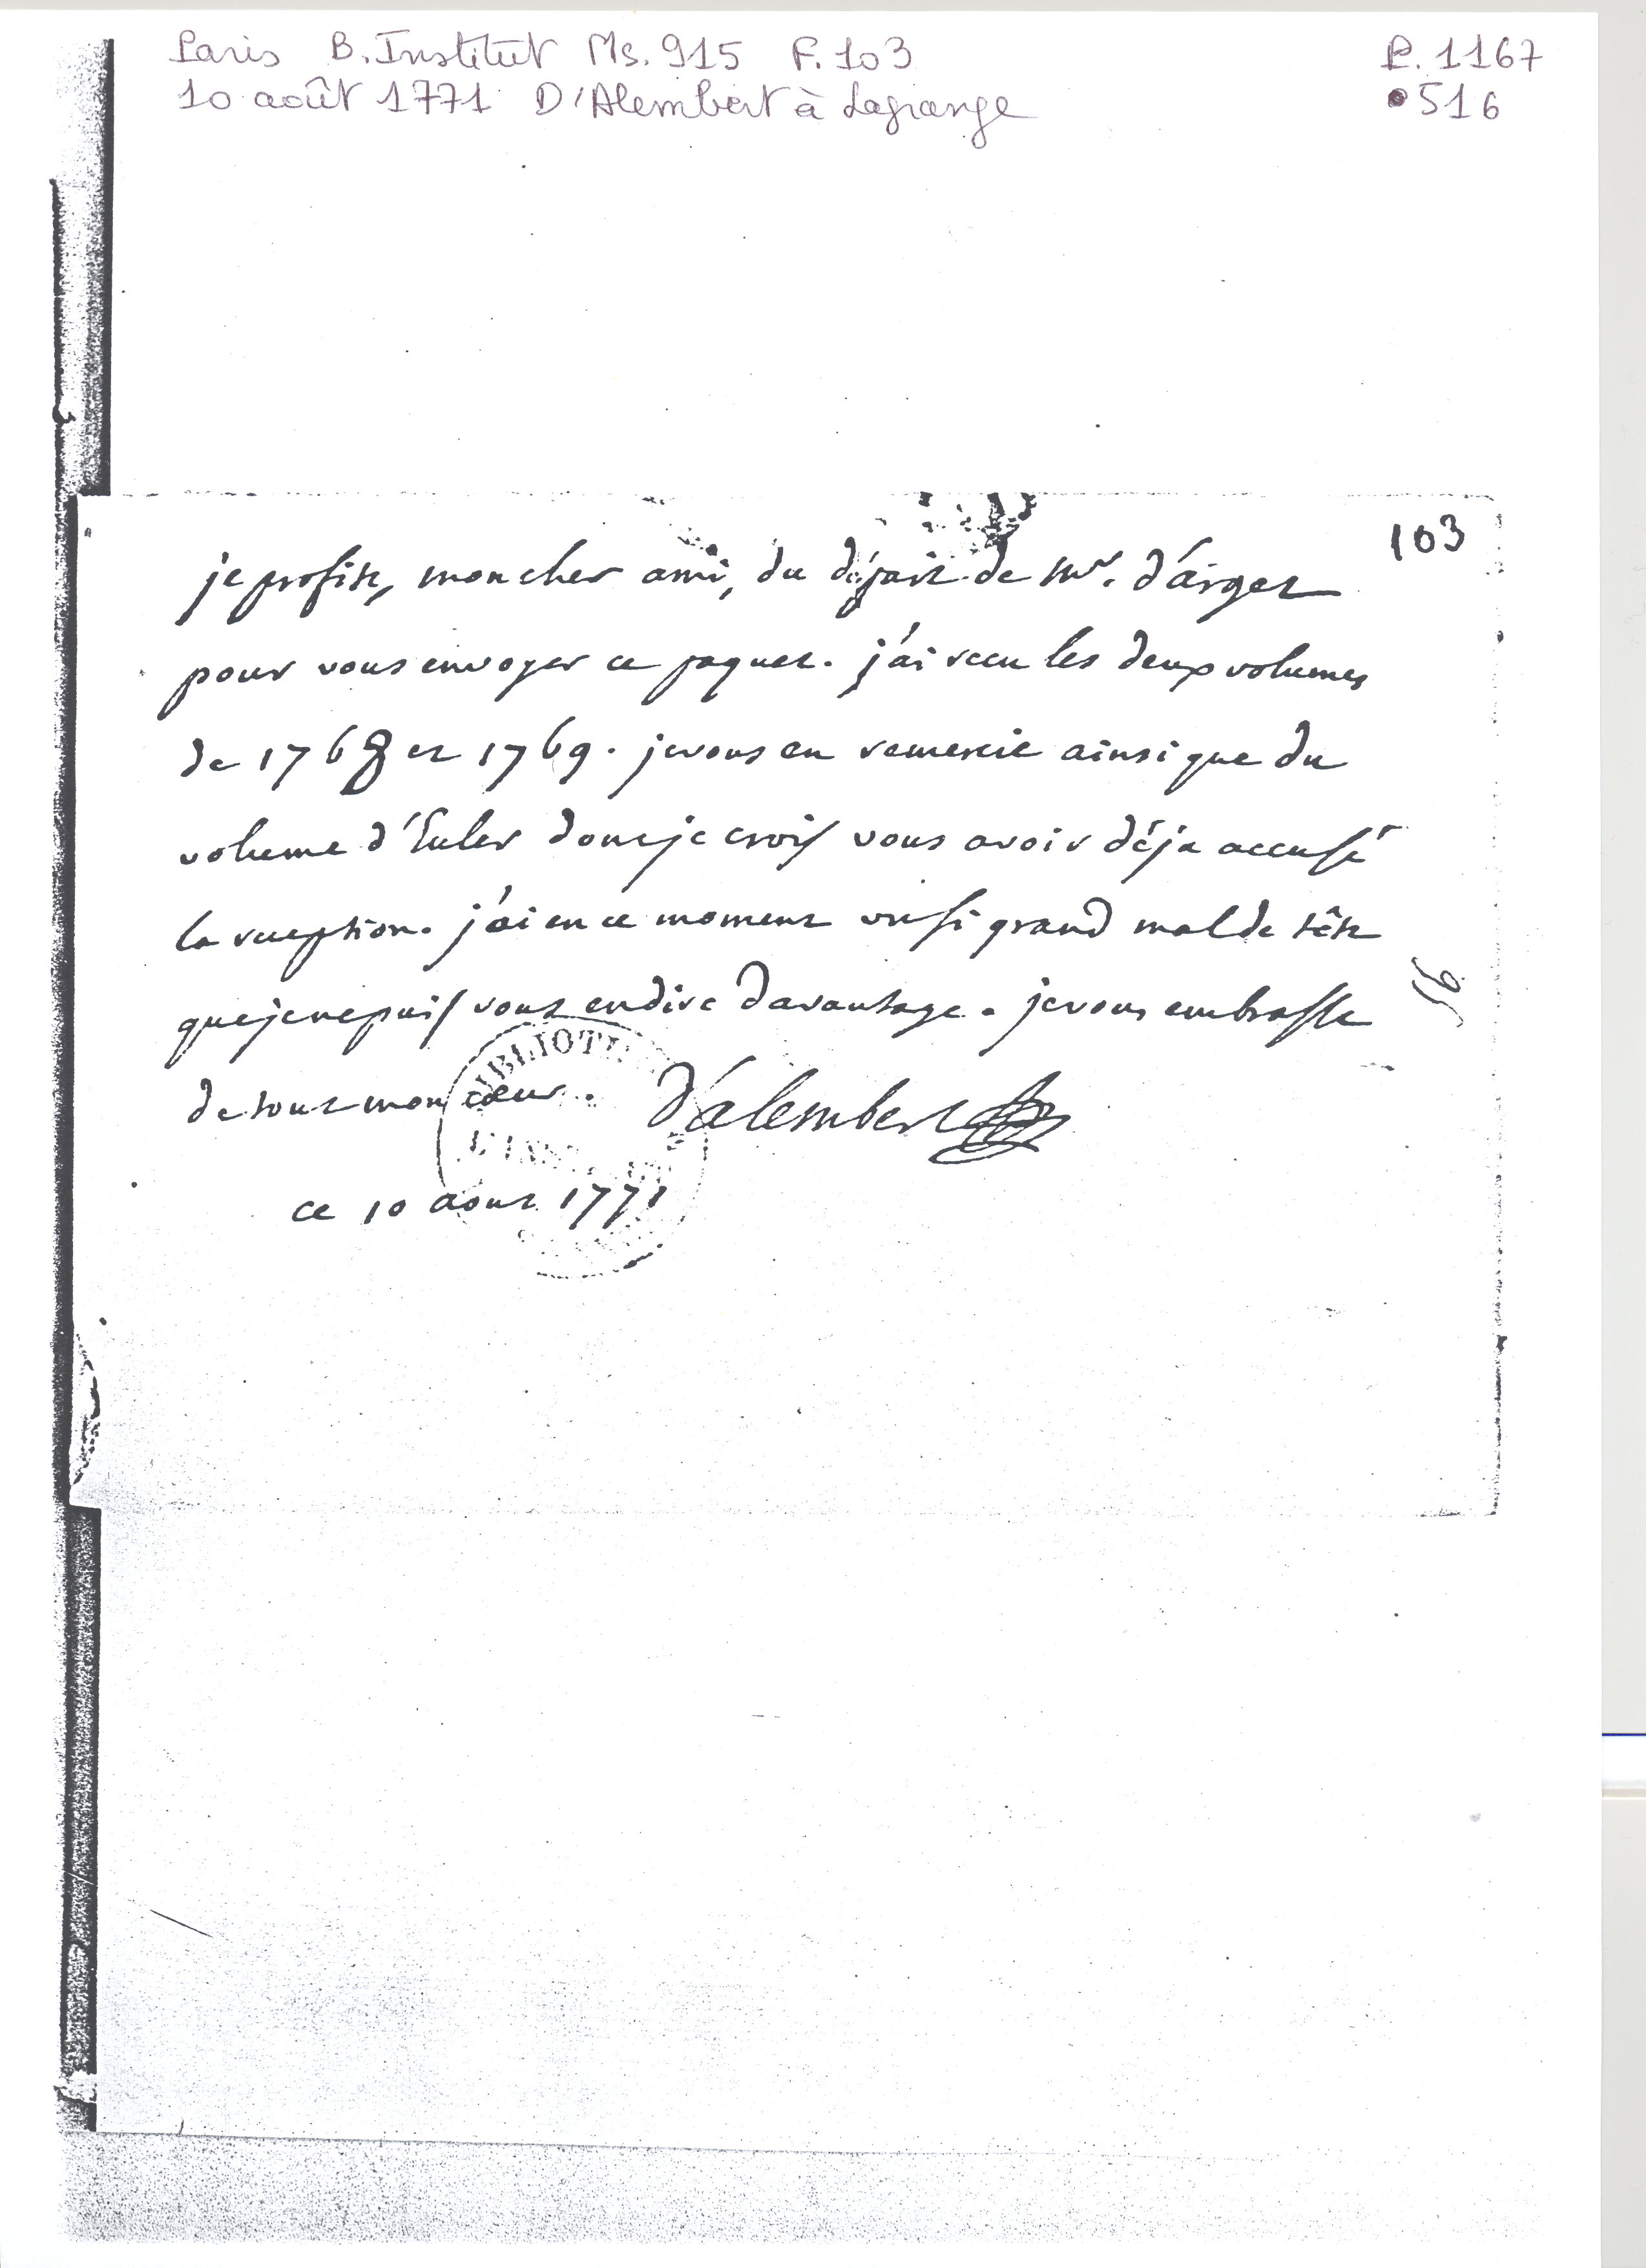 Paris B. Institut Ms. 915 F. 103
P. 1167
10 août 1771 D'Alembert à Lagrange
516
103
je profite, mon cher ami, du départ de Mr. d'arget
pour vous envoyer ce paquet. j'ai recu les deux volumes
de 1768 et 1769. je vous en remercie ainsi que du
volume d'Euler dont je crois vous avoir déja accusé
la reception. j'ai en ce moment un si grand mal de tête
que je ne puis vous en dire davantage. je vous embrasse
de tout mon coeur. d'alembert
ce 10 aout 1771
56